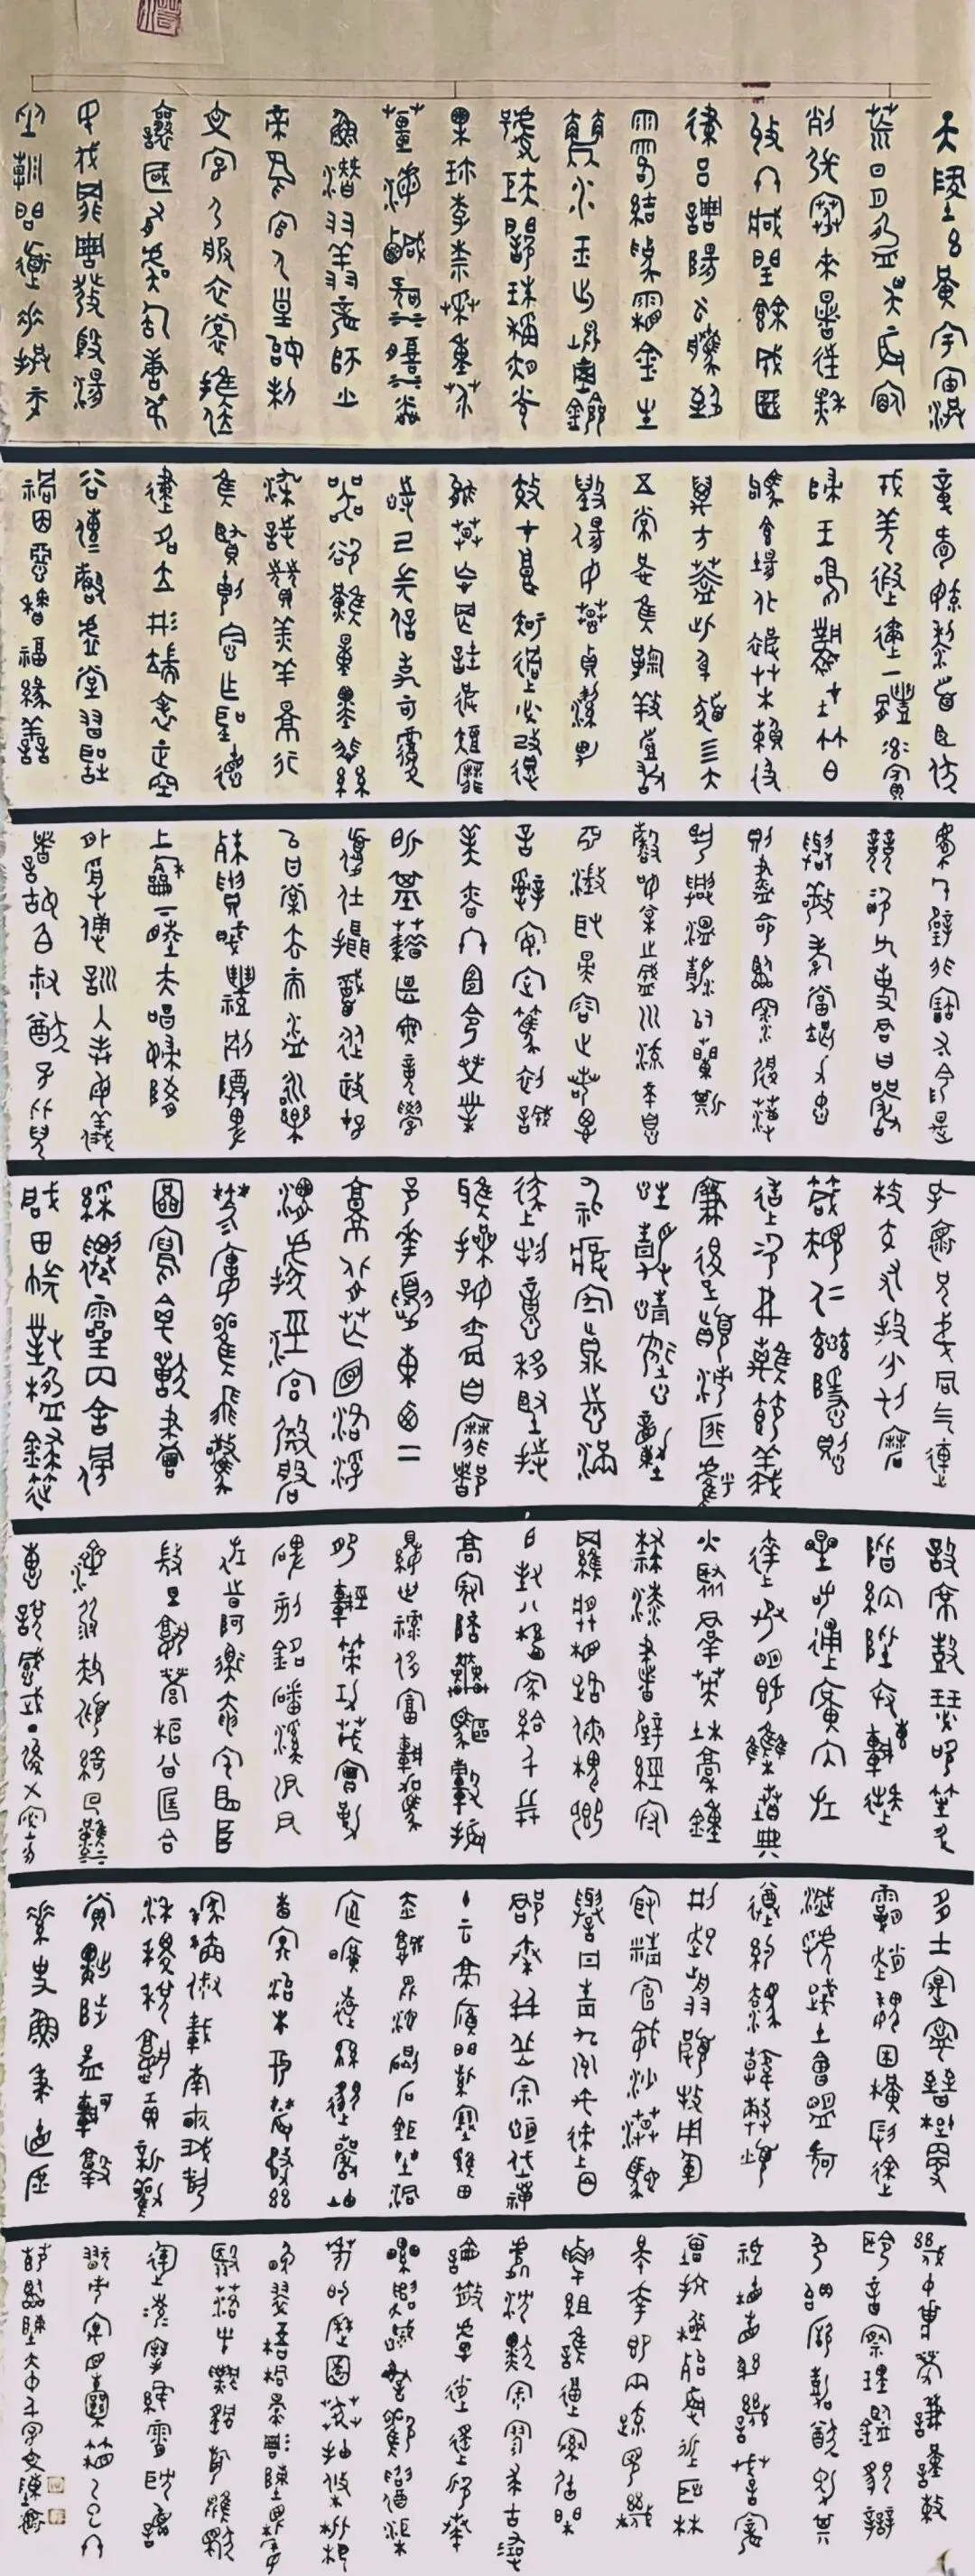 天地玄黃宇宙洪
荒日月盈昃辰宿
列張寒來暑往秋
收冬藏閏餘成歲
律呂調陽雲騰致
雨露結為霜金生
麗水玉出崑岡劍
號巨闕珠稱夜光
果珍李柰菜重芥
薑海鹹河淡
鱗潛羽翔龍師火
帝鳥官人皇始制
文字乃服衣裳推位
讓國有虞陶唐弔
民伐罪周發殷湯
坐朝問道垂拱平
章愛育黎首臣伏
戎羌遐邇一體率賓
歸王鳴鳳在竹白
駒食場化被草木賴及
萬方蓋此身髮四大
五常恭惟鞠養豈敢
毀傷女慕貞潔男
效才良知過必改得
能莫忘罔談彼短靡
恃己長信使可覆
器欲難量墨悲絲
染詩讚羔羊景行
維賢剋念作聖德
建名立形端表正空
谷傳聲虛堂習聽
禍因惡積福緣善
慶尺璧非寶寸陰是
競資父事君曰嚴
與敬孝當竭力忠
則盡命臨深履薄
夙興溫凊似蘭斯
馨如松之盛川流不息
淵澄取映容止若思
言辭安定篤初誠
美慎終宜令榮業
所基籍甚無竟學
優仕攝職從政存
以甘棠去而益詠樂
殊貴賤禮別尊卑
上和下睦夫唱婦隨
外受傅訓入奉母儀
諸姑伯叔猶子比兒
孔懷兄弟同氣連
枝交友投分切磨
箴規仁慈隱惻
造次弗離節義
廉退顛沛匪虧
性靜情逸心動
神疲守真志滿
逐物意移堅持
雅操好爵自縻都
邑華夏東西二
京背邙面洛浮
渭據涇宮殿盤
鬱樓觀飛驚
圖寫禽獸畫
彩仙靈丙舍傍
啟甲帳對楹肆筵
設席鼓瑟吹笙升
階納陛弁轉疑
星右通廣內左
達承明既集墳典
亦聚群英杜稿鍾
隸漆書壁經府
羅將相路俠槐卿
戶封八縣家給千兵
高冠陪輦驅轂振
纓世祿侈富車駕肥
輕策功茂實勒
碑刻銘磻溪伊尹
佐時阿衡奄宅曲阜
微旦孰營桓公匡合
濟弱扶傾綺回漢
惠說感武丁俊乂密勿
多士寔寧晉楚更
霸趙魏困橫假途
滅虢踐土會盟何
遵約法韓弊煩
刑起翦頗牧用軍
最精宣威沙漠馳
譽丹青九州禹跡百
郡秦并嶽宗恒岱禪
主云亭雁門紫塞雞田
赤城昆池碣石鉅野洞
庭曠遠綿邈巖岫
杳冥治本於農務茲
稼穡俶載南畝我藝
黍稷稅熟貢新勸
賞黜陟孟軻敦
素史魚秉直庶
幾中庸勞謙謹敕
聆音察理鑒貌辨
色貽厥嘉猷勉其
祗植省躬譏誡寵
增抗極殆辱近恥林
皋幸即兩疏見機
解組誰逼索居閒
處沉默寂寥求古尋
論散慮逍遙欣奏
累遣慼謝歡招渠
荷的歷園莽抽條枇杷
晚翠梧桐早凋陳根委
翳落葉飄颻遊鵾獨
運凌摩絳霄耽讀
翫市寓目囊箱